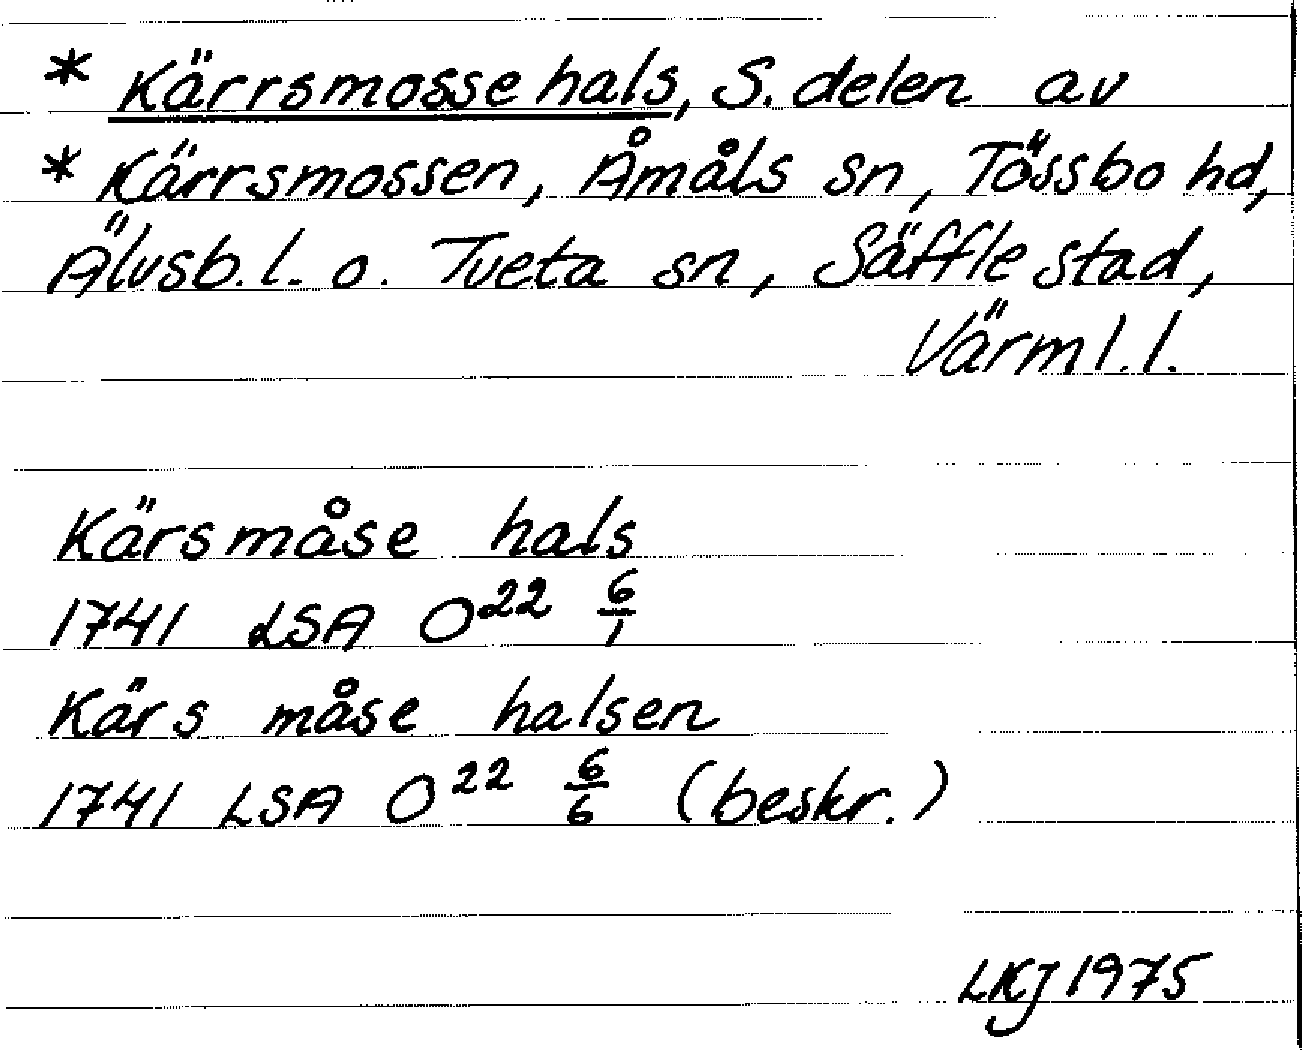 * Kärrsmosse hals, S. delen av
* Kärrsmossen, Åmåls sn, Tössbo hd,
Älvsb. l. o. Tveta sn, Säffle stad,
Värml. l.
Kärsmåse hals
1741 LSA O²² 6/1
Kärs måse halsen
1741 LSA O²² 6/6 (beskr.)
LKJ 1975